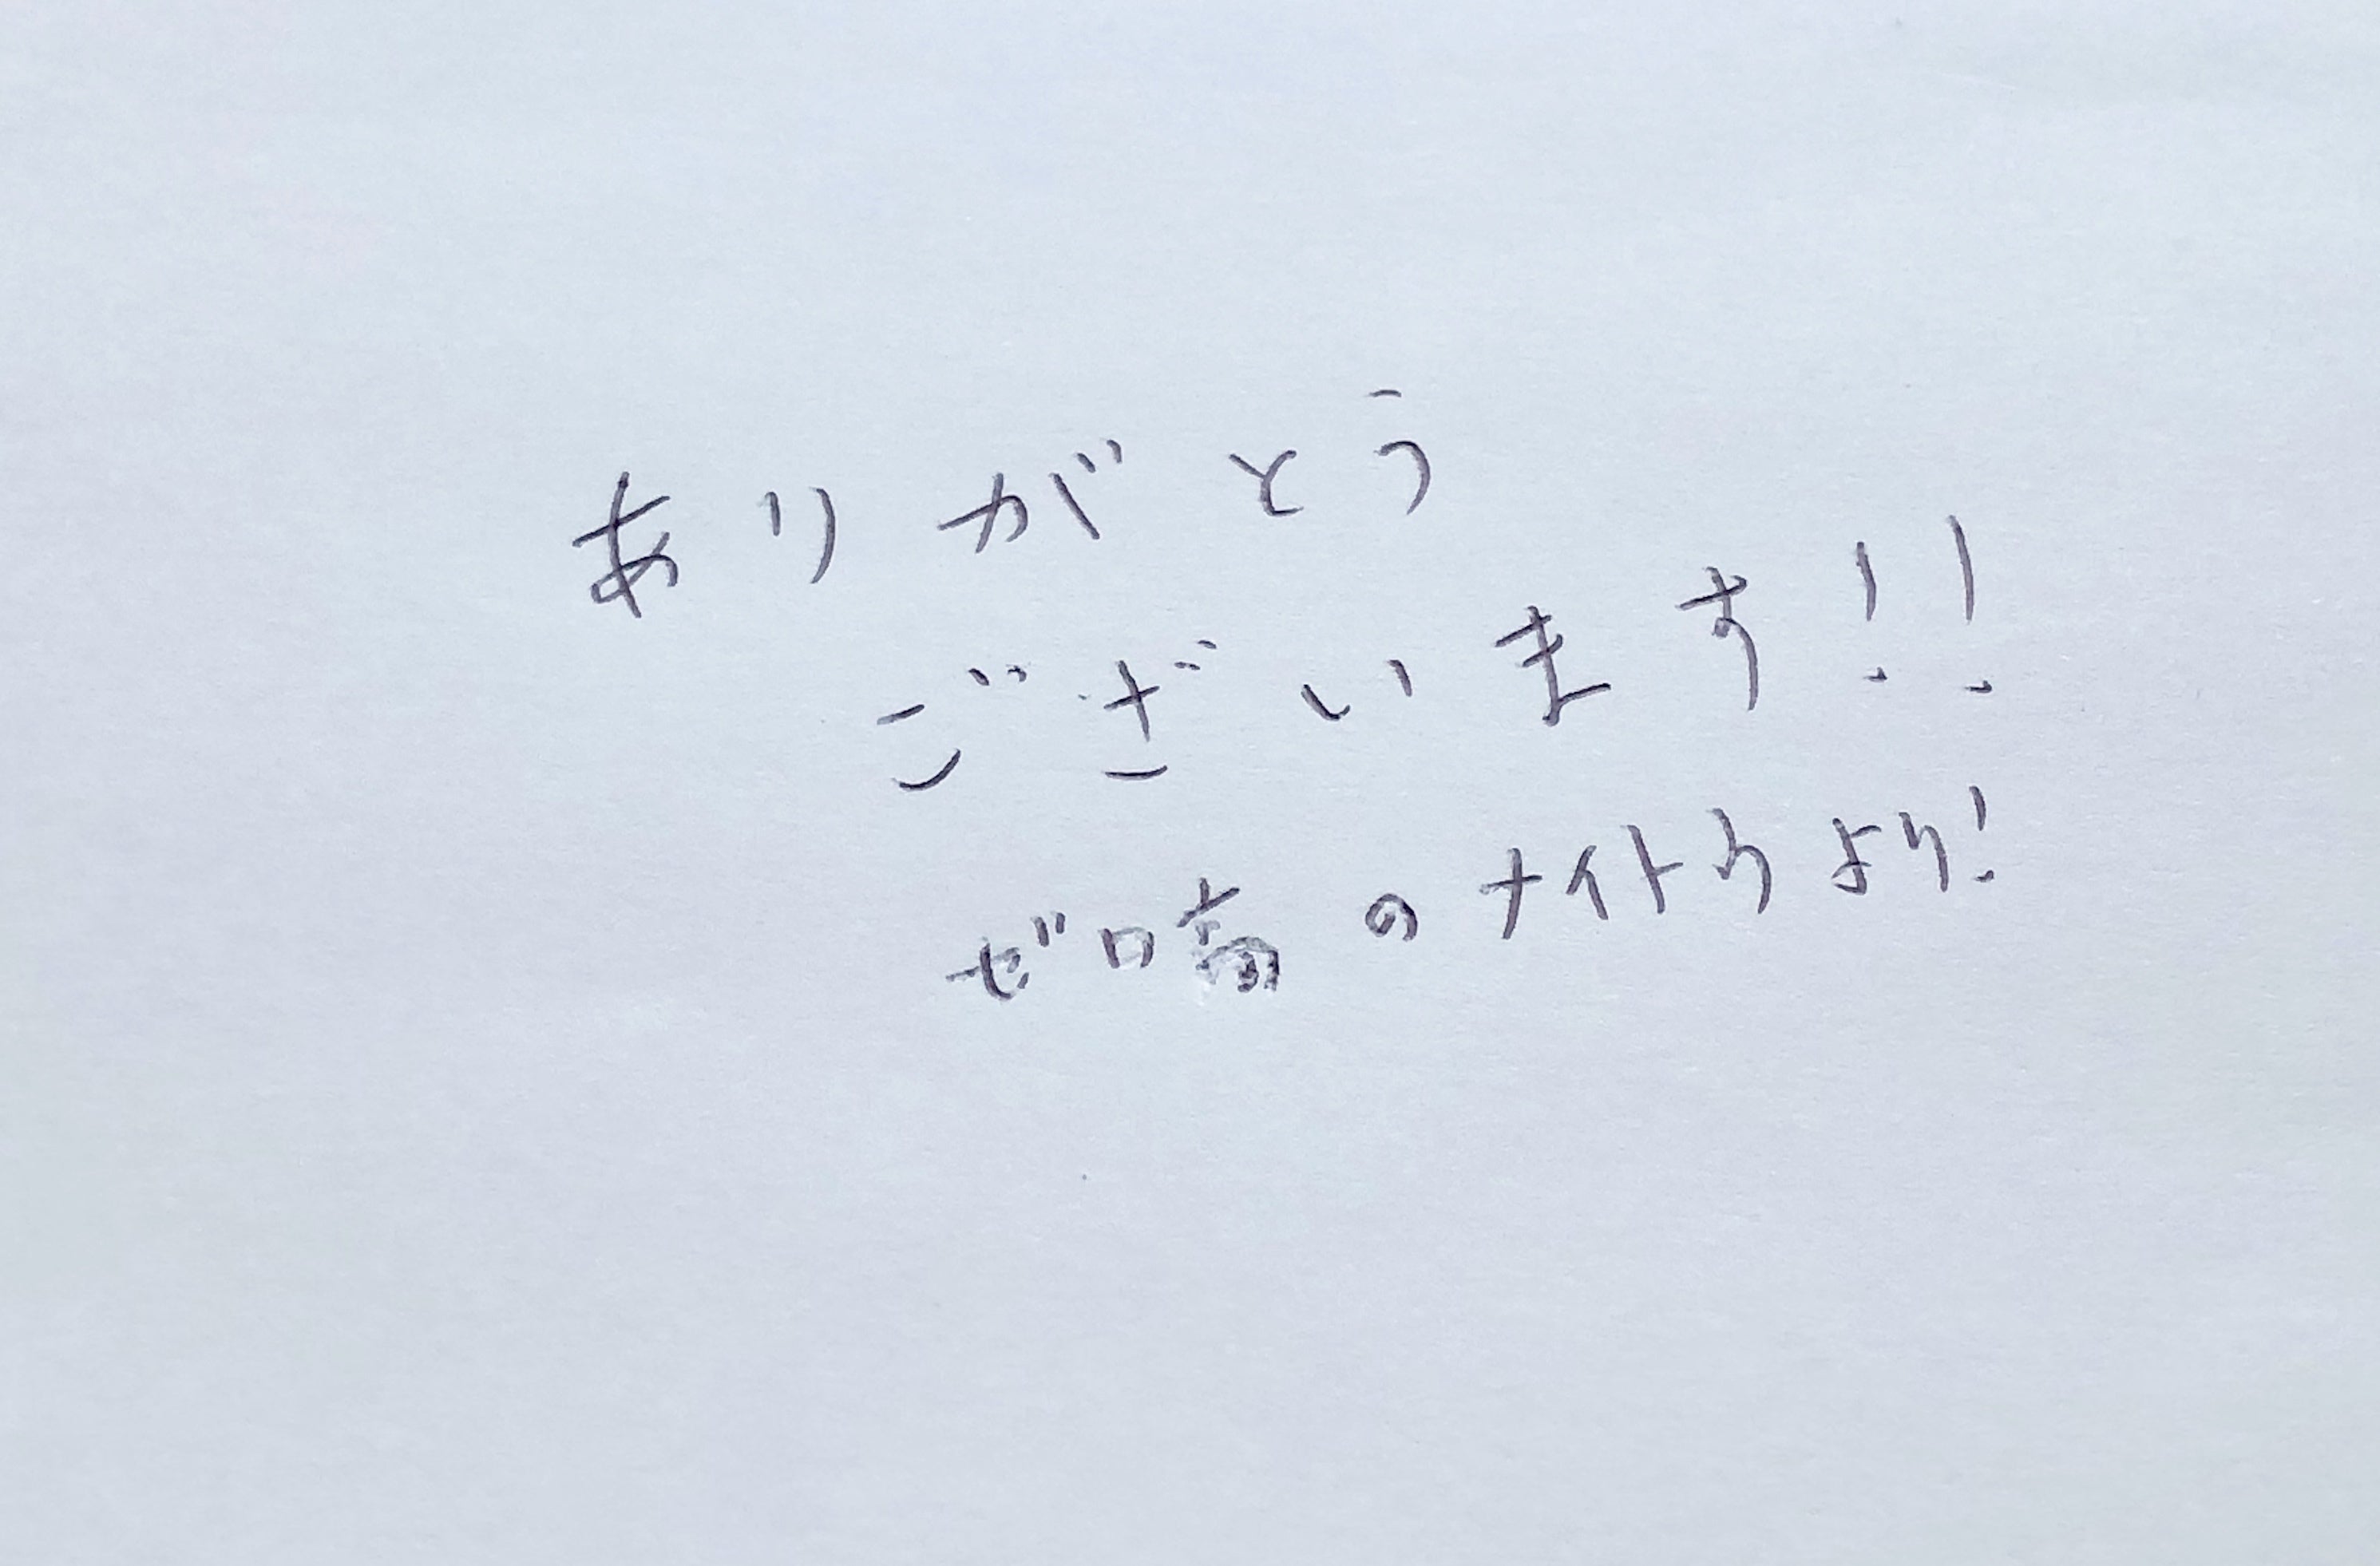 ありがとう
ございます!!
ゼロ高のナイトウより!